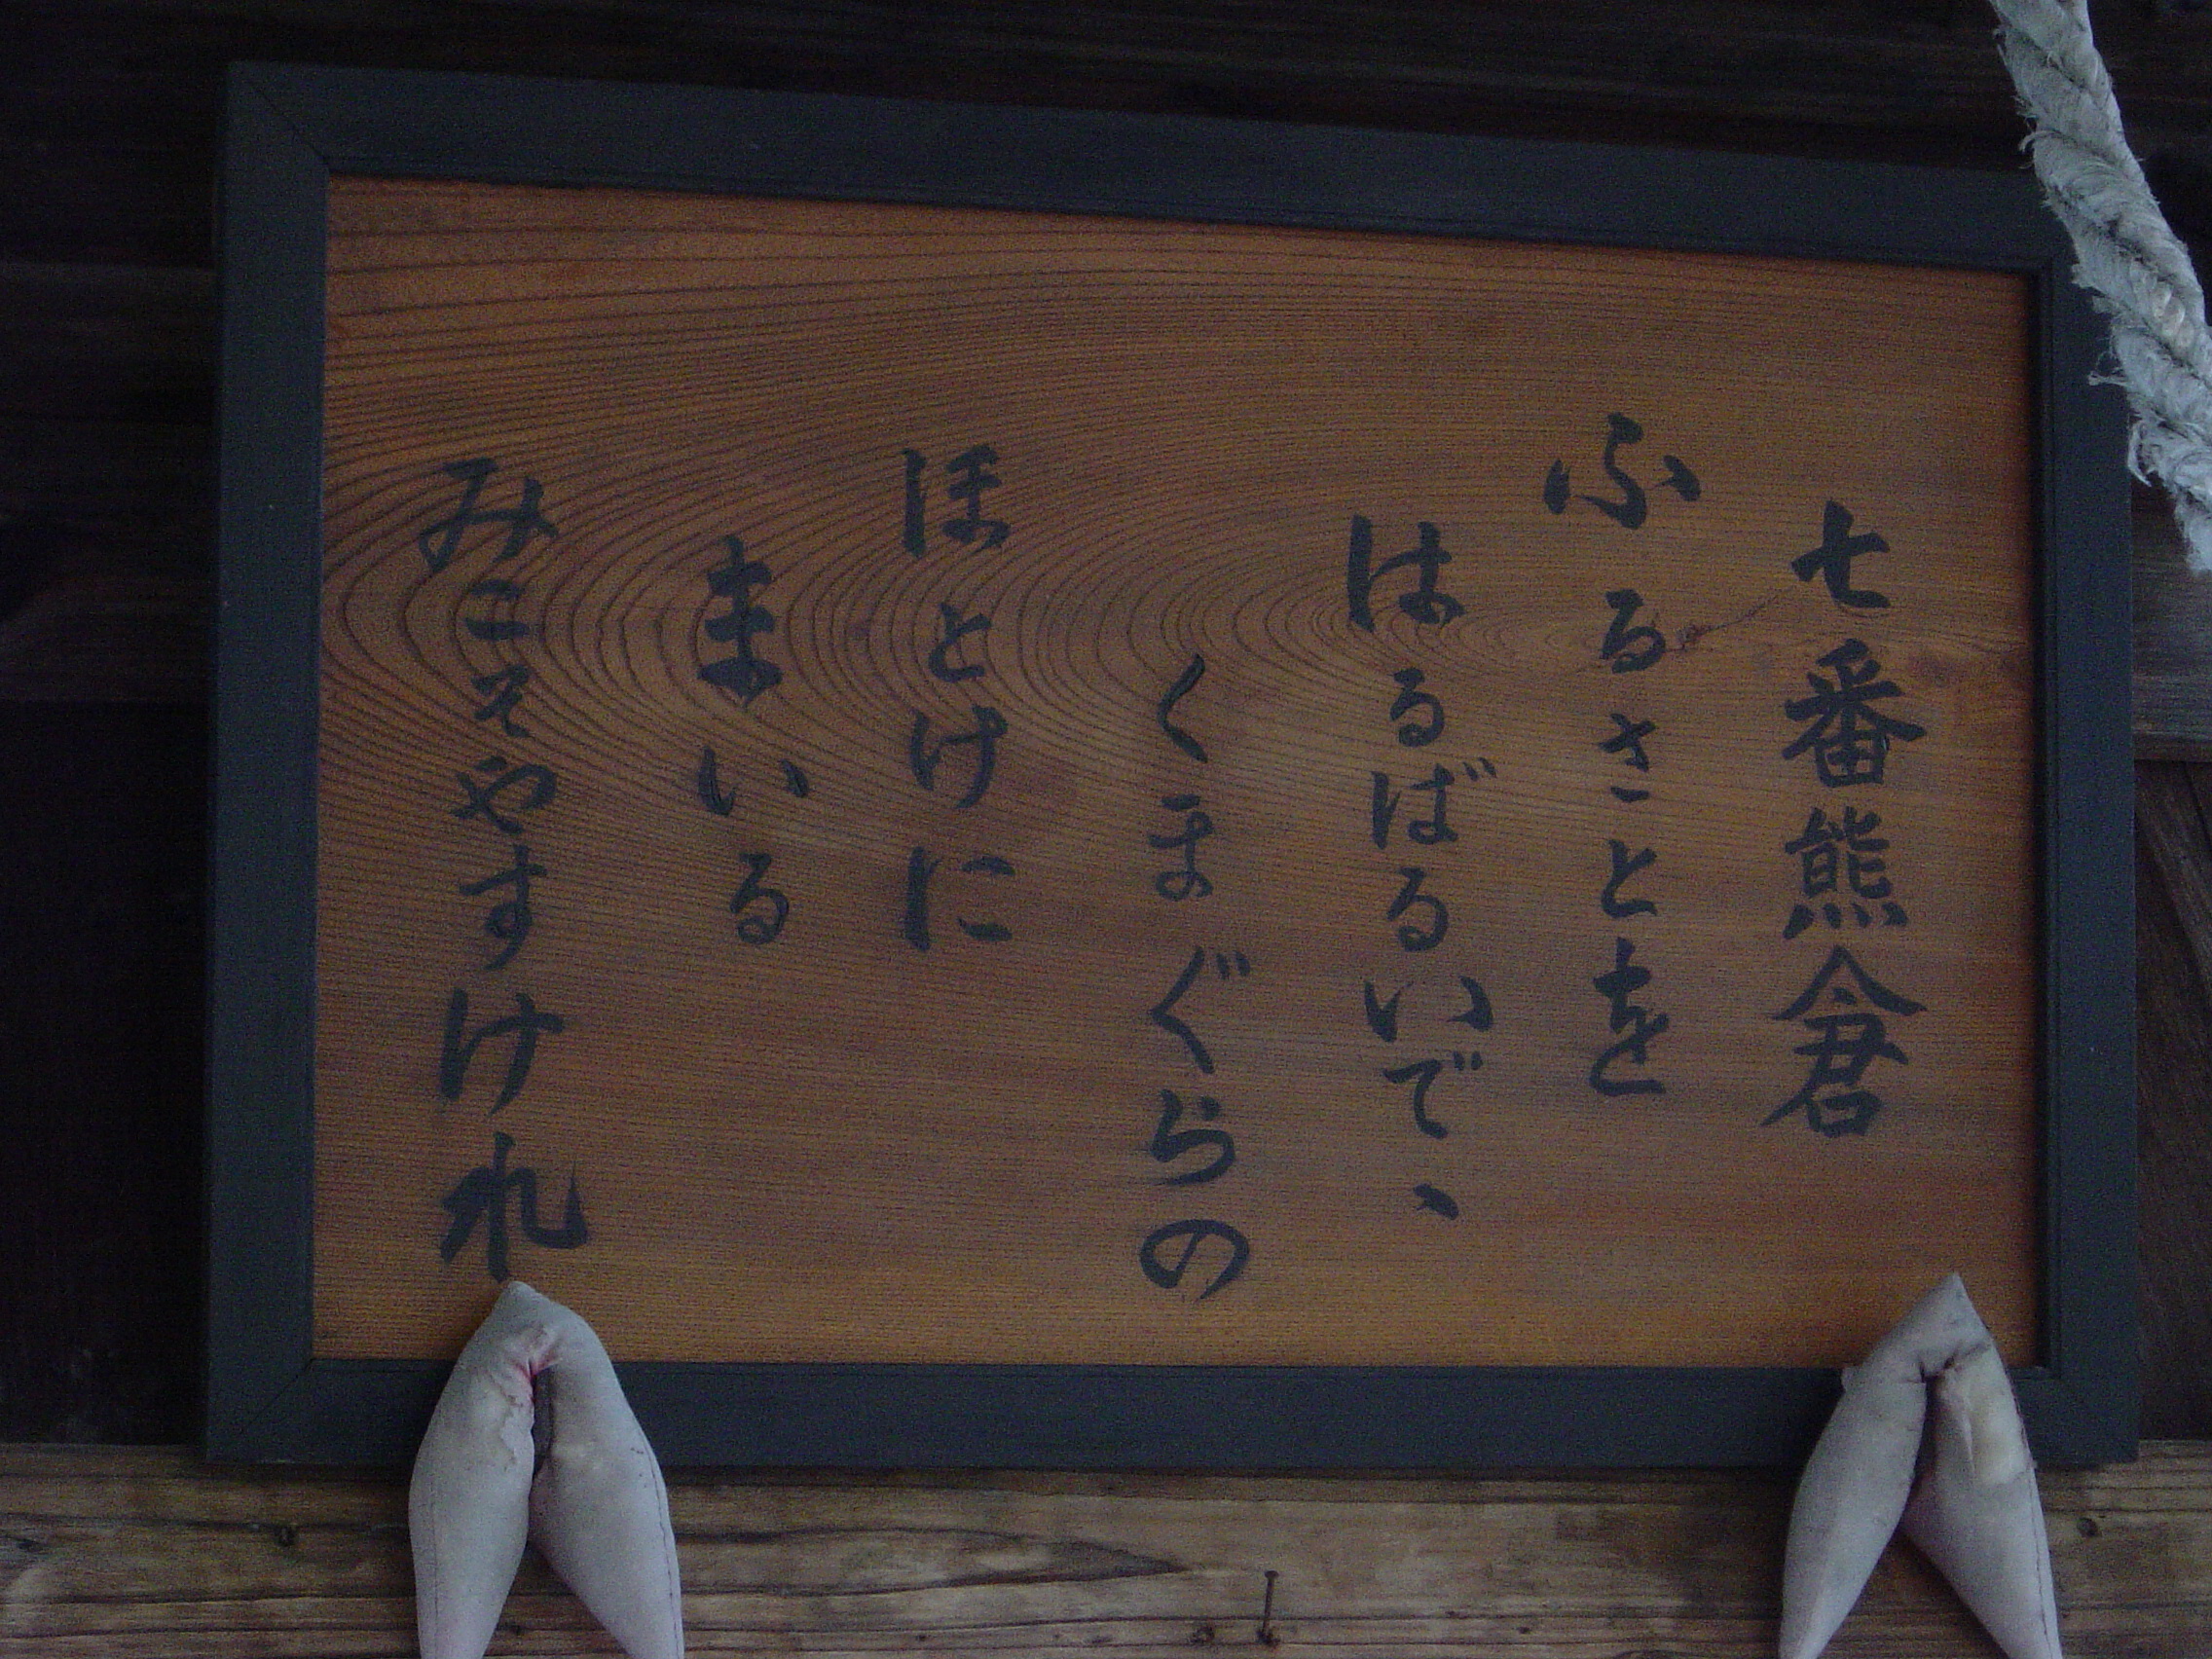 七番熊倉
ふるさとを
はるばるいで、
くまぐらの
ほとけに
まいる
みこそやすけれ